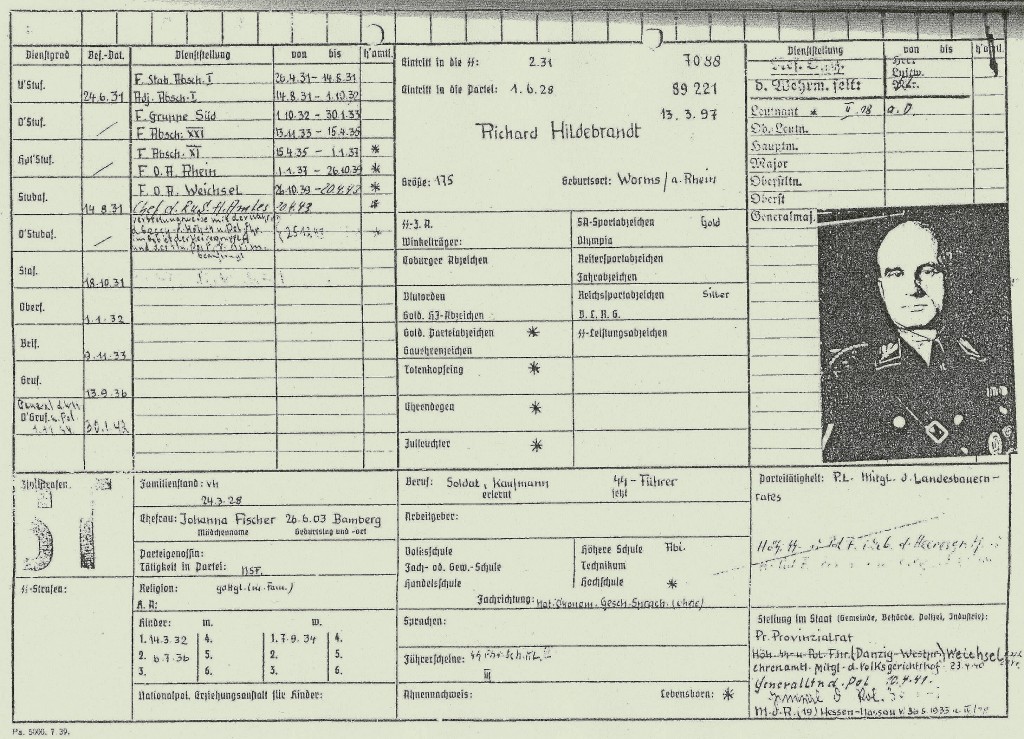 Dienstgrad Bef.-Dat. Dienststellung von bis h'amtl.
U'Stuf. 24.6.31
F. Stab. Absch. I 26.4.31 - 14.8.31
Adj. Absch. I 14.8.31 - 1.10.32
O'Stuf.
F. Gruppe Süd 1.10.32 - 30.1.33
F. Absch. XXI 13.11.33 - 15.4.35
Hpt'Stuf.
F. Absch. XI 15.4.35 - 1.1.37 *
F. O.A. Rhein 1.1.37 - 26.10.39 *
Stubaf. 14.8.31
F. O.A. Weichsel 26.10.39 - 20.4.43 *
Chef d. RuS. H. Amtes 20.4.43 *
O'Stubaf.
beauftragt
Staf. 18.10.31
Oberf. 1.1.32
Brif. 9.11.33
Gruf. 13.9.36
O'Gruf. u. Pol. 30.1.42
Eintritt in die SS: 2.31 7088
Eintritt in die Partei: 1.6.28 89 221
13.3.97
Richard Hildebrandt
Größe: 175 Geburtsort: Worms / a. Rhein
SS-Z.A.
Winkelträger:
Coburger Abzeichen
Blutorden
Gold. HJ-Abzeichen
Gold. Parteiabzeichen *
Gauehrenzeichen
Totenkopfring *
Ehrendegen *
Julleuchter *
SA-Sportabzeichen Gold
Olympia
Reitersportabzeichen
Fahrabzeichen
Reichssportabzeichen Silber
D.L.R.G.
SS-Leistungsabzeichen
Dienststellung von bis h'amtl.
d. Wehrm. seit:
Leutnant * II.18 a.D.
Ob. Leutn.
Hauptm.
Major
Oberstltn.
Oberst
Generalmaj.
Zivilstrafen:
SS-Strafen:
Familienstand: vh
24.3.28
Ehefrau: Johanna Fischer 26.6.03 Bamberg
Mädchenname Geburtstag und -ort
Parteigenossin:
Tätigkeit in Partei: NSF.
Religion: gottgl. (m. Fam.)
Kinder: m. w.
1. 14.3.32 4. 1. 7.9.34 4.
2. 6.7.36 5. 2. 5.
3. 6. 3. 6.
Nationalpol. Erziehungsanstalt für Kinder:
Beruf: Soldat, Kaufmann SS-Führer
erlernt jetzt
Arbeitgeber:
Volksschule Höhere Schule Abi.
Fach- od. Gew.-Schule Technikum
Handelsschule Hochschule *
Fachrichtung: Nat. Ökonom. Gesch. Sprach. (ohne)
Sprachen:
Führerscheine:
III
Ahnennachweis: Lebensborn: *
Parteitätigkeit: P.L. Mitgl. d. Landesbauern-
rates
Stellung im Staat (Gemeinde, Behörde, Polizei, Industrie):
Pr. Provinzialrat
Höh. SS- u. Pol. Fhr. (Danzig-Westpr.) Weichsel
ehrenamtl. Mitgl. d. Volksgerichtshof 23.4.40
Generalltnd. Pol. 10.4.41.
M.d.R. (19) Hessen-Nassau
Pa. 5006. 7 39.